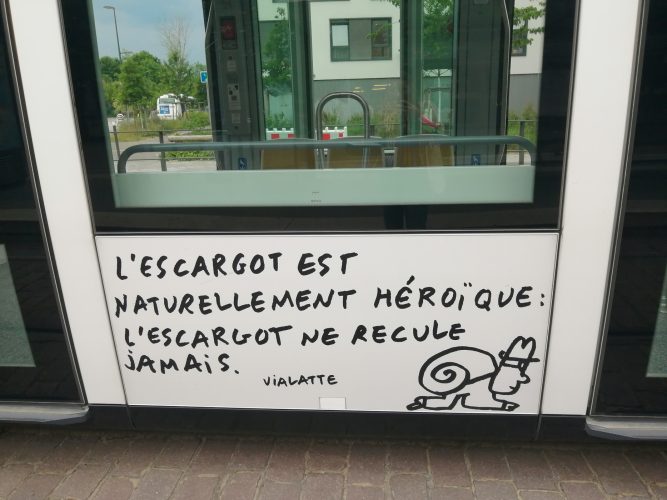 L'ESCARGOT EST
NATURELLEMENT HÉROÏQUE:
L'ESCARGOT NE RECULE
JAMAIS.
VIALATTE